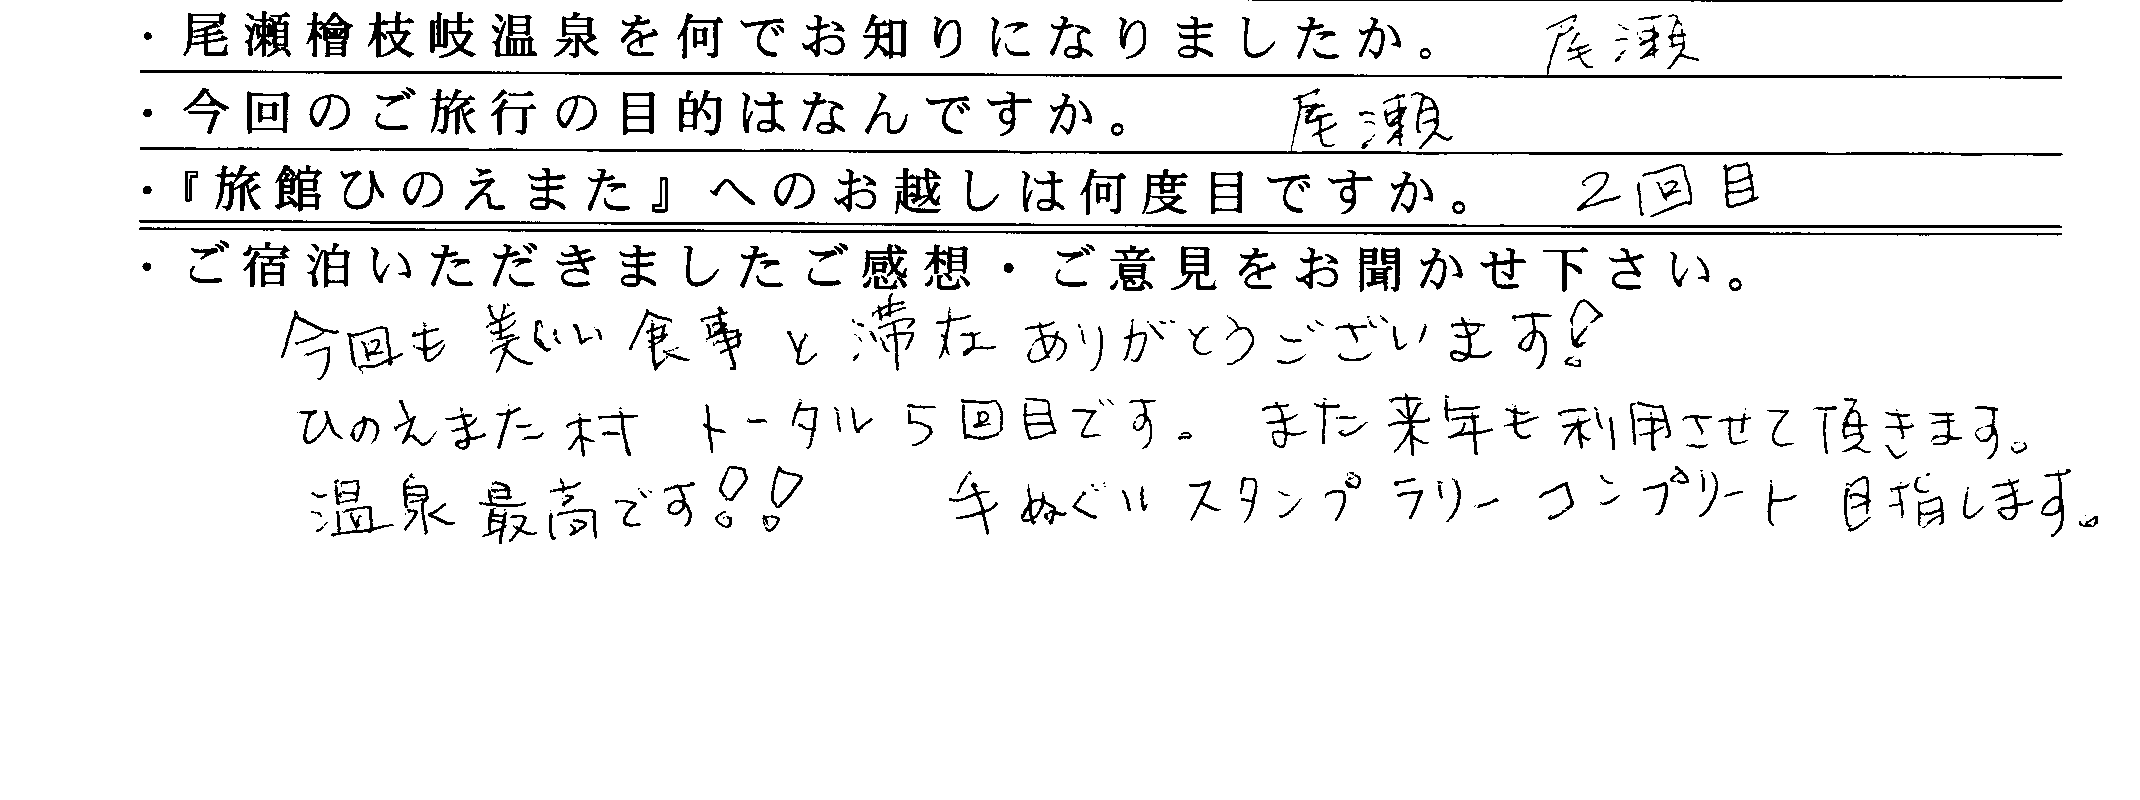 ・尾瀬檜枝岐温泉を何でお知りになりましたか。 尾瀬
・今回のご旅行の目的はなんですか。 尾瀬
・『旅館ひのえまた』へのお越しは何度目ですか。 2回目
・ご宿泊いただきましたご感想・ご意見をお聞かせ下さい。
今回も美しい食事と滞在ありがとうございます!
ひのえまた村 トータル5回目です。また来年も利用させて頂きます。
温泉最高です!! 手ぬぐいスタンプラリーコンプリート目指します。